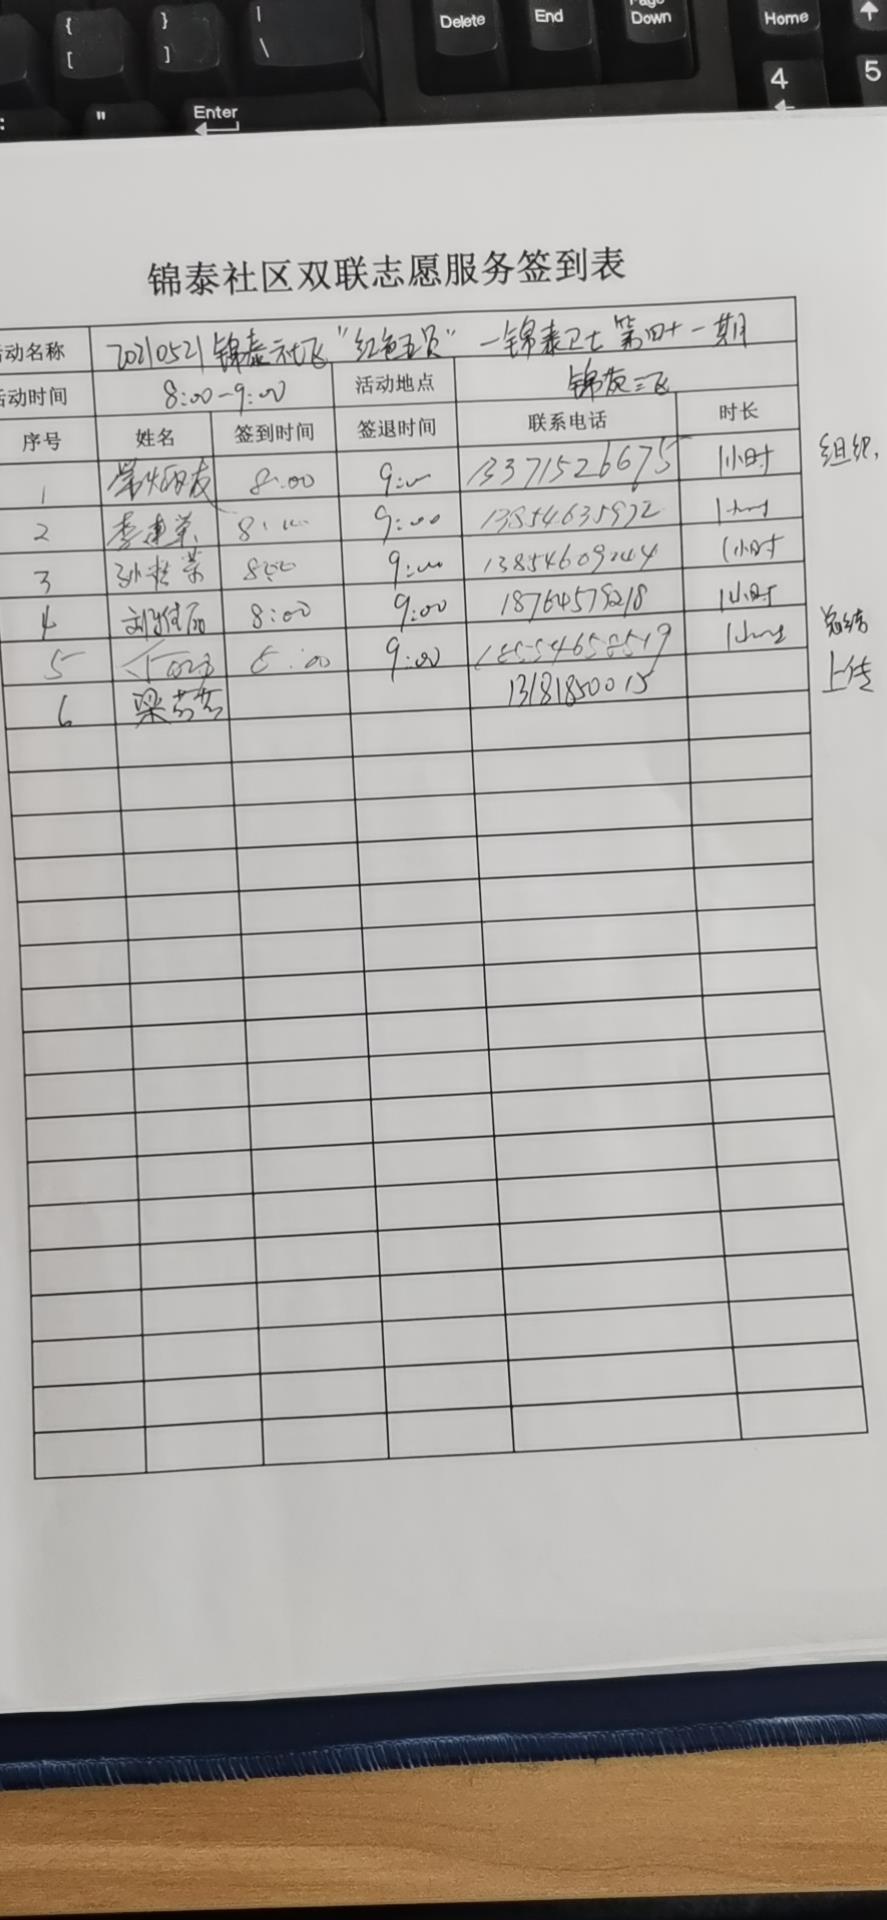 { } | Delete End Page Down Home ↑
[ ] \ 4 5
: " Enter
锦泰社区双联志愿服务签到表
活动名称 20210521锦泰社区"红色五员"—锦泰卫士第四十一期
活动时间 8:00-9:00 活动地点 锦苑三区
序号 姓名 签到时间 签退时间 联系电话 时长
1 8:00 9:00 13371526675 1小时 组织,
2 李建荣 8:00 9:00 13854635972 1小时
3 孙桂荣 8:00 9:00 1小时
4 8:00 9:00 18764579218 1小时
5 8:00 9:00 18554658519 1小时 总结
6 梁芯蕊 13181850015 上传